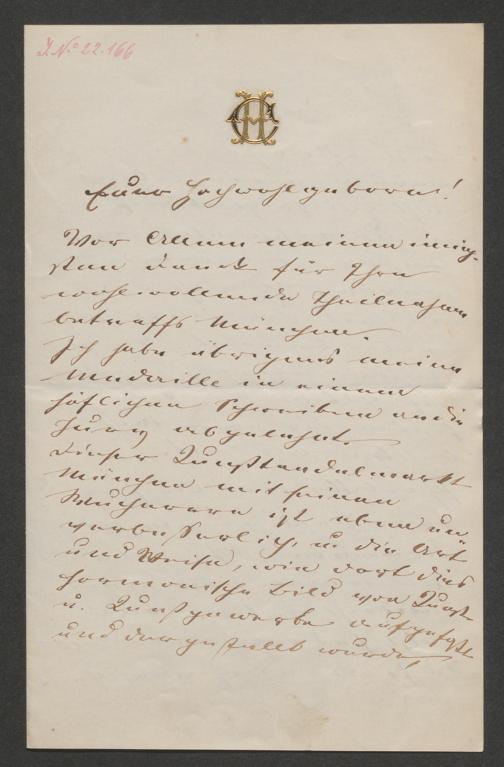 J. No. 22.166
Euer Hochwohlgeboren!
Vor Allem meinen innig-
sten Dank für Ihre
wohlwollende Theilnahme
betreffs München.
Ich habe übrigens meine
Medaille in einem
höflichen Schreiben an die
Jury abgelehnt.
Dieser Kunsttandelmarkt
München mit seinen
Wucherern ist eben un-
verbesserlich, u die Art
und Weise, wie dort dies
harmonische Bild von Kunst
u. Kunstgewerbe aufgefaßt
und dargestellt wurde,